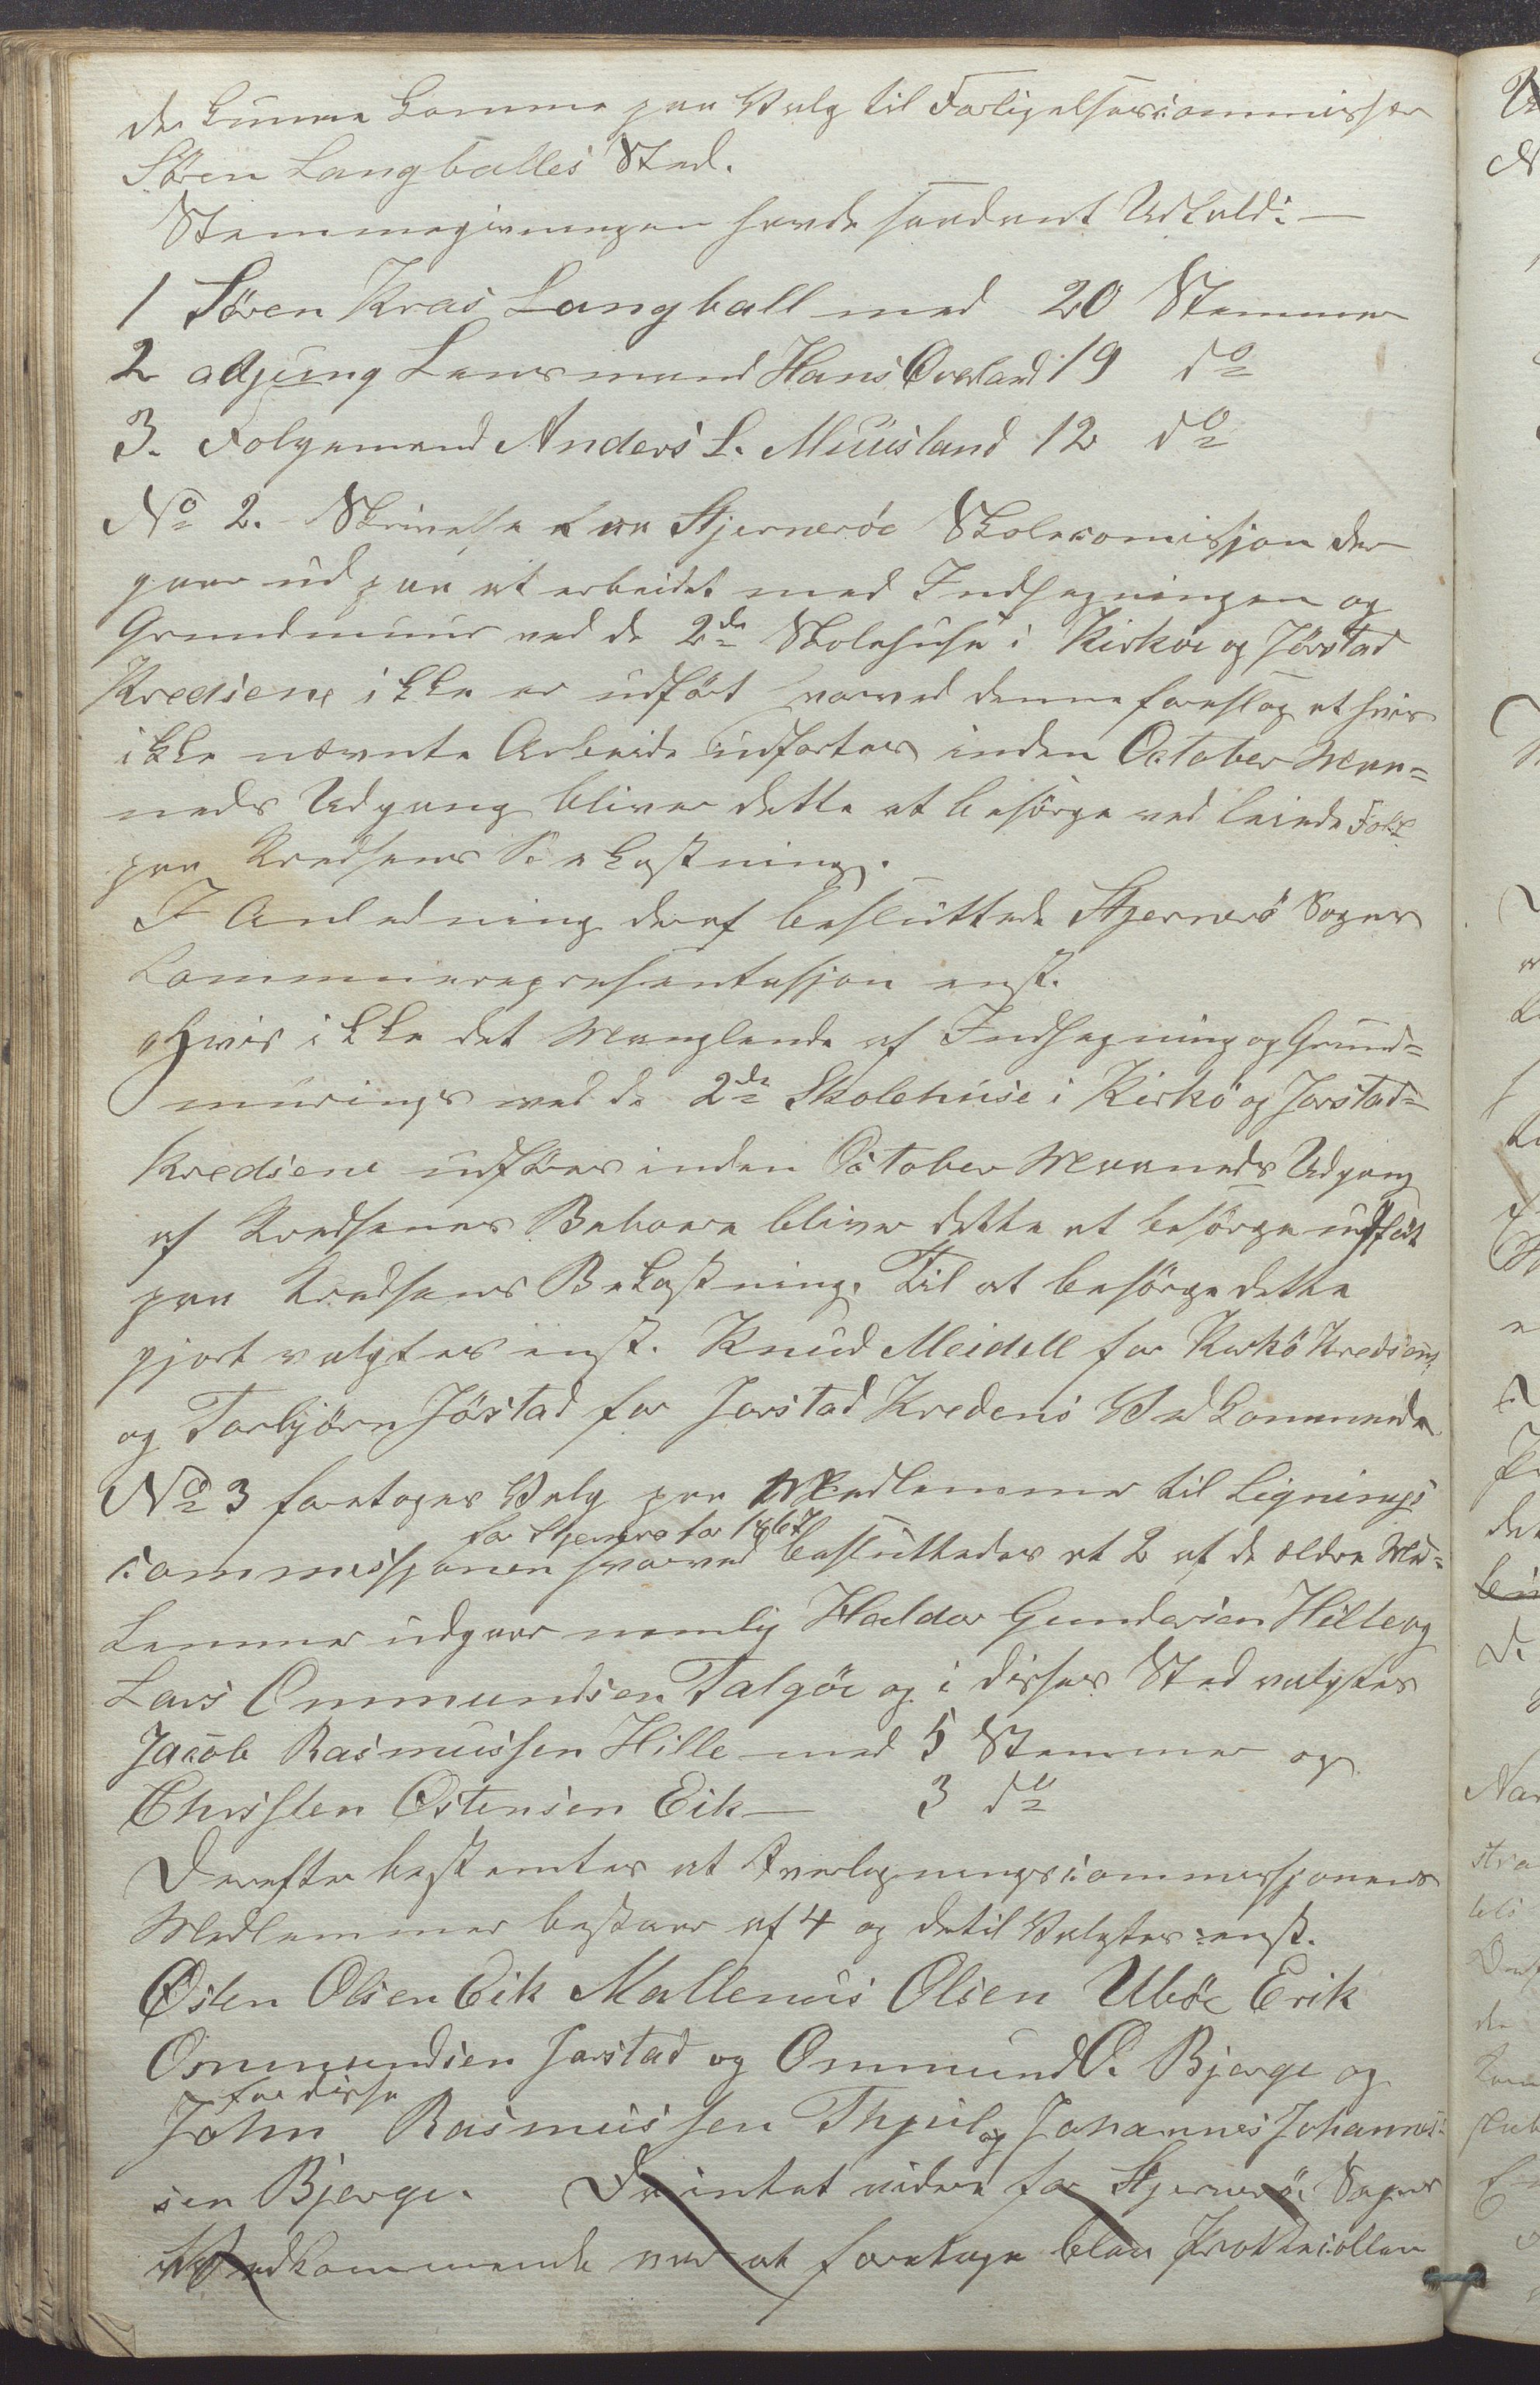 der kunne komme paa Valg til Forligelsescommissær
Sören Langballes Sted.
Stemmegivningen havde saadant Udfald:
1 Sören Kras Langball med 20 Stemmer
2 adjung Lensmand Hans Överland 19 do
3. Folgemand Anders L. Muusland 12 do
No 2. Skrivelse fra Stjernerøe Skolecomisjon der
gaar ud paa at arbeidet med Indhegningen og
Grundmuur ved de 2de Skolehuse i Kirkøe og Jörstad
Kredsene ikke er udfört hvorved denne foreslog at hvis
ikke nævnte Arbeide udfortes inden October Maa=
neds Udgang bliver dette at besörge ved leiede Folk
paa Kredsens Bekostning.
I Anledning deraf besluttede Stjernerö Sogns
Communerepresentasjon enst.
"Hvis ikke det Manglende af Indhegning og Grund=
murings ved de 2de Skolehuse i Kirkö og Jorstad=
Kredsene udföres inden October Maaneds Udgang
af Kredsenes Beboere bliver dette at besörge udfört
paa Kredsens Bekostning. Til at besörge dette
gjort valgtes enst. Knud Meidell for Kirkö Kredsens
og Torbjörn Jörstad for Jorstad Kredens Vedkommende
No 3 foretoges Valg paa Medlemmer til Lignings
for Stjernero for 1867
commissjonen hvorved besluttedes at 2 af de ældre Med=
lemmer udgaar nemlig Haldor Gundersen Hille og
Lars Ommundsen Talgöe og i disses Sted valgtes
Jacob Rasmussen Hille med 5 Stemmer og
Christen Østensen Eik — 3 do
Derefter bestemtes at Overligningscommissjonens
Medlemmer bestaar af 4 og dertil Valgtes enst.
Østen Olsen Eik Mallenius Olsen Uböe Erik
Ommundsen Jorstad og Ommund O. Bjerge og
for disse
John Rasmussen Thjul og Johannes Johannes=
sen Bjerge. Da intet videre for Stjerneröe Sogns
Vedkommende var at foretage blev Prottecollen